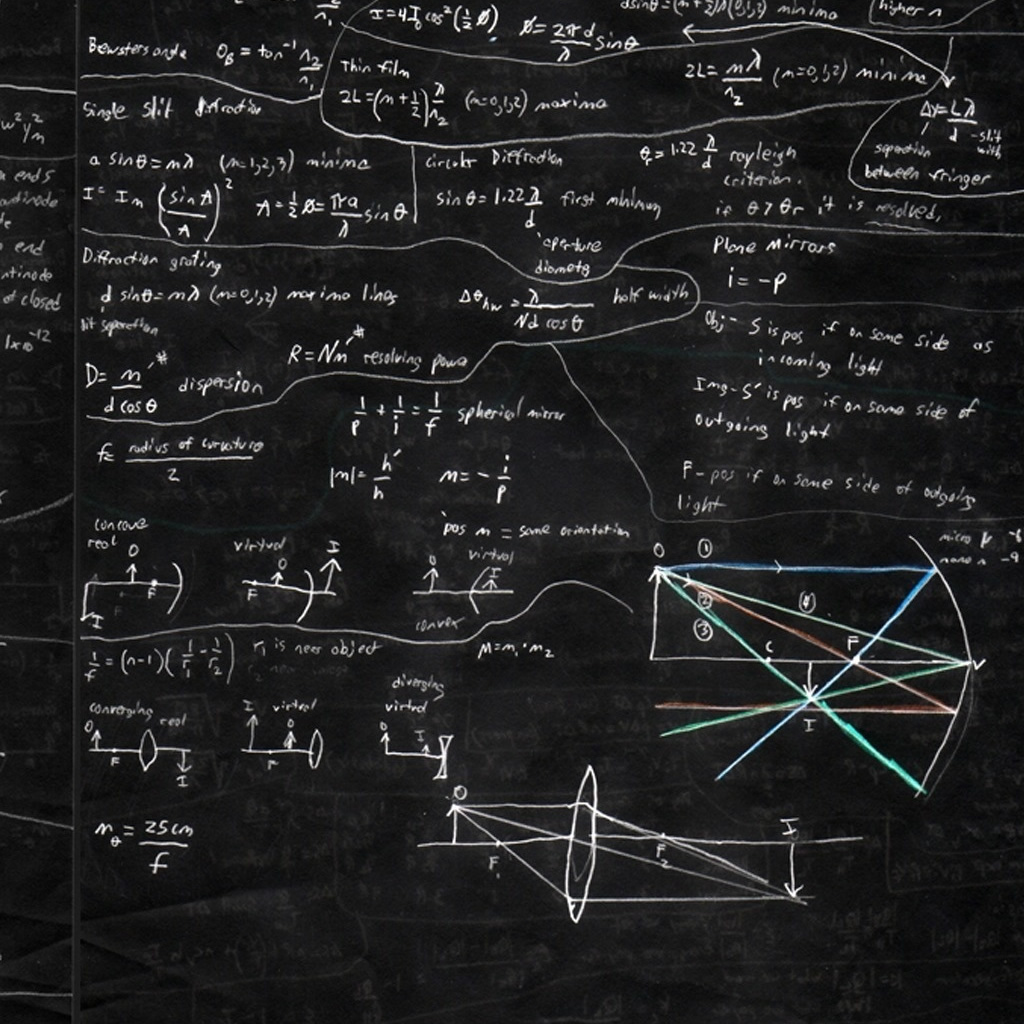 I = 4I₀ cos²(½ Ø)   Ø = 2πd/λ sinθ
minima
higher n
Brewsters angle   θ_B = tan⁻¹ n₂/n₁
Thin film
2L = (m + ½) λ/n₂ (m=0,1,2) maxima
2L = mλ/n₂ (m=0,1,2) minima
Δy = Lλ/d
- slit with
sepration
between fringer
Single slit diffraction
a sinθ = mλ (m=1,2,3) minima
I = Iₘ (sin A/A)²   A = ½ Ø = πa/λ sin θ
Circular Diffraction
sinθ = 1.22 λ/d first minimum
aperture
diameter
θᵣ = 1.22 λ/d rayleigh
criterion.
if θ > θr it is resolved,
Diffraction grating
d sinθ = mλ (m=0,1,2) maxima lines
slit separation
Δθ_hw = λ/(Nd cosθ) half width
D = m/(d cos θ) # dispersion
R = Nm # resolving power
Plane Mirrors
i = -p
Obj - S is pos if on same side as
incoming light
Img - S' is pos if on same side of
outgoing light
F - pos if on same side of outgoing
light
1/p + 1/i = 1/f spherical mirror
f = radius of curvature/2
|m| = h'/h   m = - i/p
pos m = same orientation
w²y²m
n ends
end
of closed
1x10⁻¹²
concave
real
O
F
I
virtual
I
O
F
virtual
O
I
convex
micro μ -6
nano n -9
O
①
②
③
④
C
F
V
I
1/f = (n-1)(1/r₁ - 1/r₂) r₁ is near object
M = m₁ · m₂
converging real
O
F
I
I
virtual
O
F
diverging
virtual
O
I
m_θ = 25cm/f
O
F₁
F₂
I